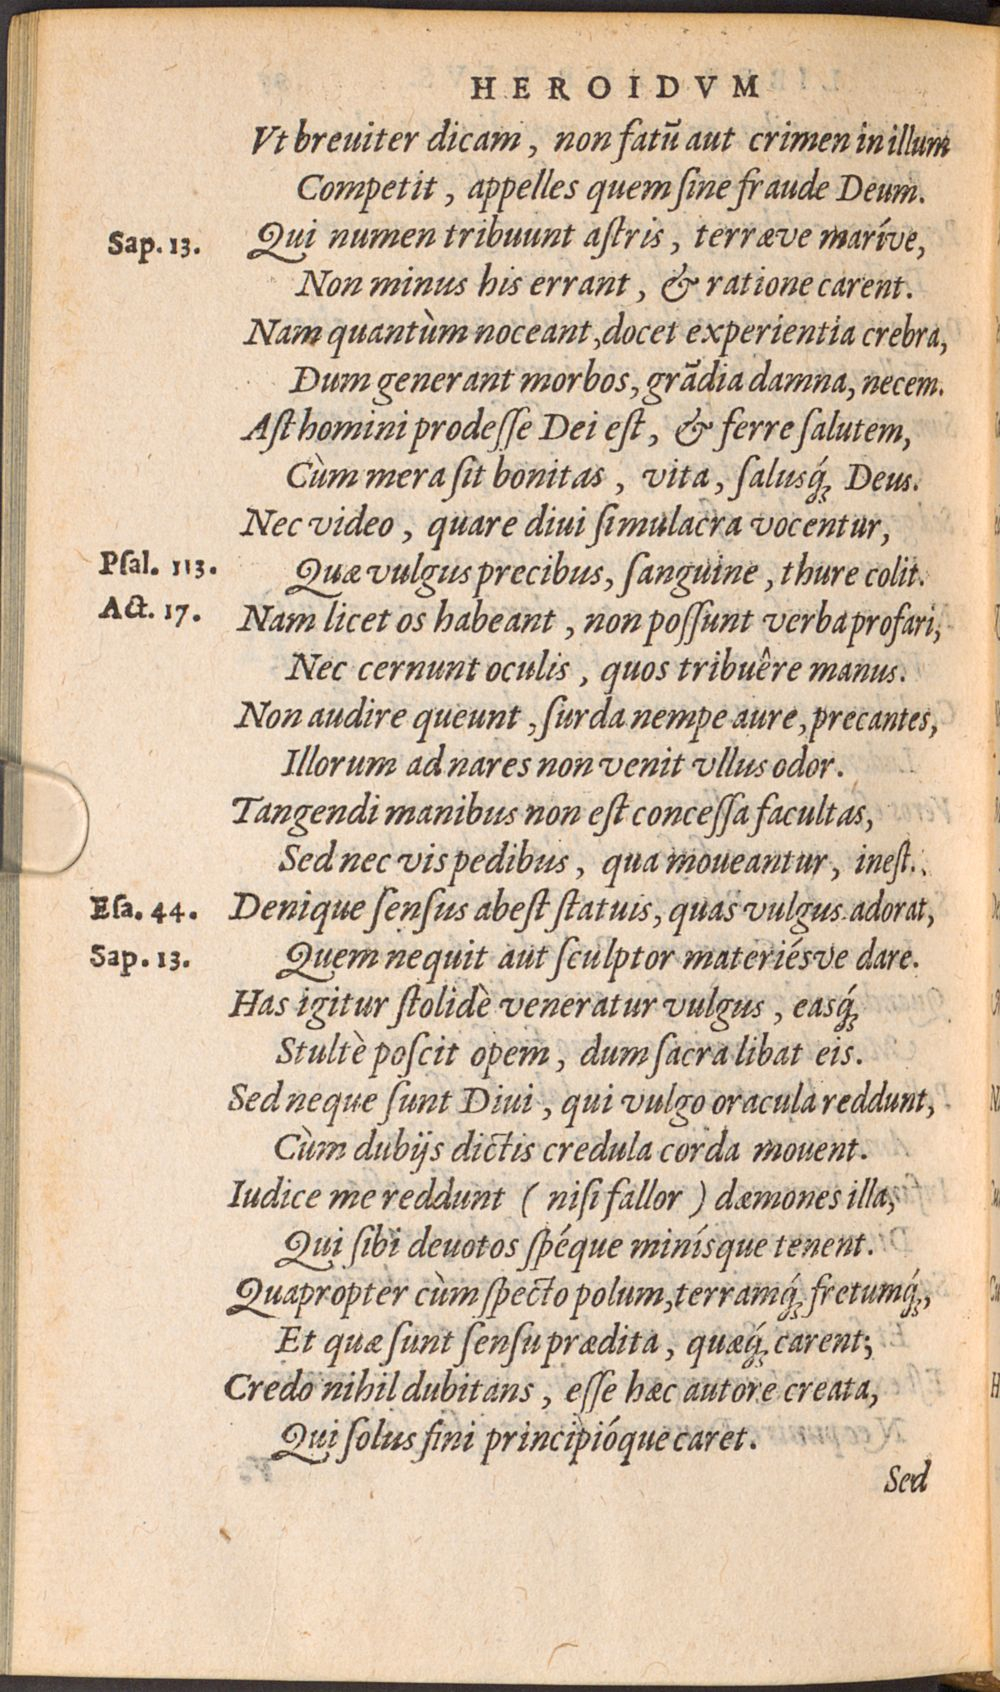 HEROIDVM
Vt breuiter dicam, non fatũ aut crimen in illum
Competit, appelles quem ſine fraude Deum.
Sap. 13. Qui numen tribuunt aſtris, terræve maríve,
Non minus his errant, & ratione carent.
Nam quantùm noceant, docet experientia crebra,
Dum generant morbos, grãdia damna, necem.
Aſt homini prodeſſe Dei eſt, & ferre ſalutem,
Cùm mera ſit bonitas, vita, ſalusq́ꝫ Deus.
Nec video, quare diui ſimulacra vocentur,
Pſal. 113. Quæ vulgus precibus, ſanguine, thure colit.
Act. 17. Nam licet os habeant, non poſſunt verba profari,
Nec cernunt oculis, quos tribuêre manus.
Non audire queunt, ſurda nempe aure, precantes,
Illorum ad nares non venit vllus odor.
Tangendi manibus non eſt conceſſa facultas,
Sed nec vis pedibus, qua moueantur, ineſt.
Eſa. 44. Denique ſenſus abeſt ſtatuis, quas vulgus adorat,
Sap. 13. Quem nequit aut ſculptor materiésve dare.
Has igitur ſtolidè veneratur vulgus, easq́ꝫ
Stultè poſcit opem, dum ſacra libat eis.
Sed neque ſunt Diui, qui vulgo oracula reddunt,
Cùm dubijs dictis credula corda mouent.
Iudice me reddunt (niſi fallor) dæmones illa,
Qui ſibi deuotos ſpéque minísque tenent.
Quapropter cùm ſpecto polum, terramq́ꝫ fretumq́ꝫ,
Et quæ ſunt ſenſu prædita, quæq́ꝫ carent;
Credo nihil dubitans, eſſe hæc autore creata,
Qui ſolus fini principióque caret.
Sed